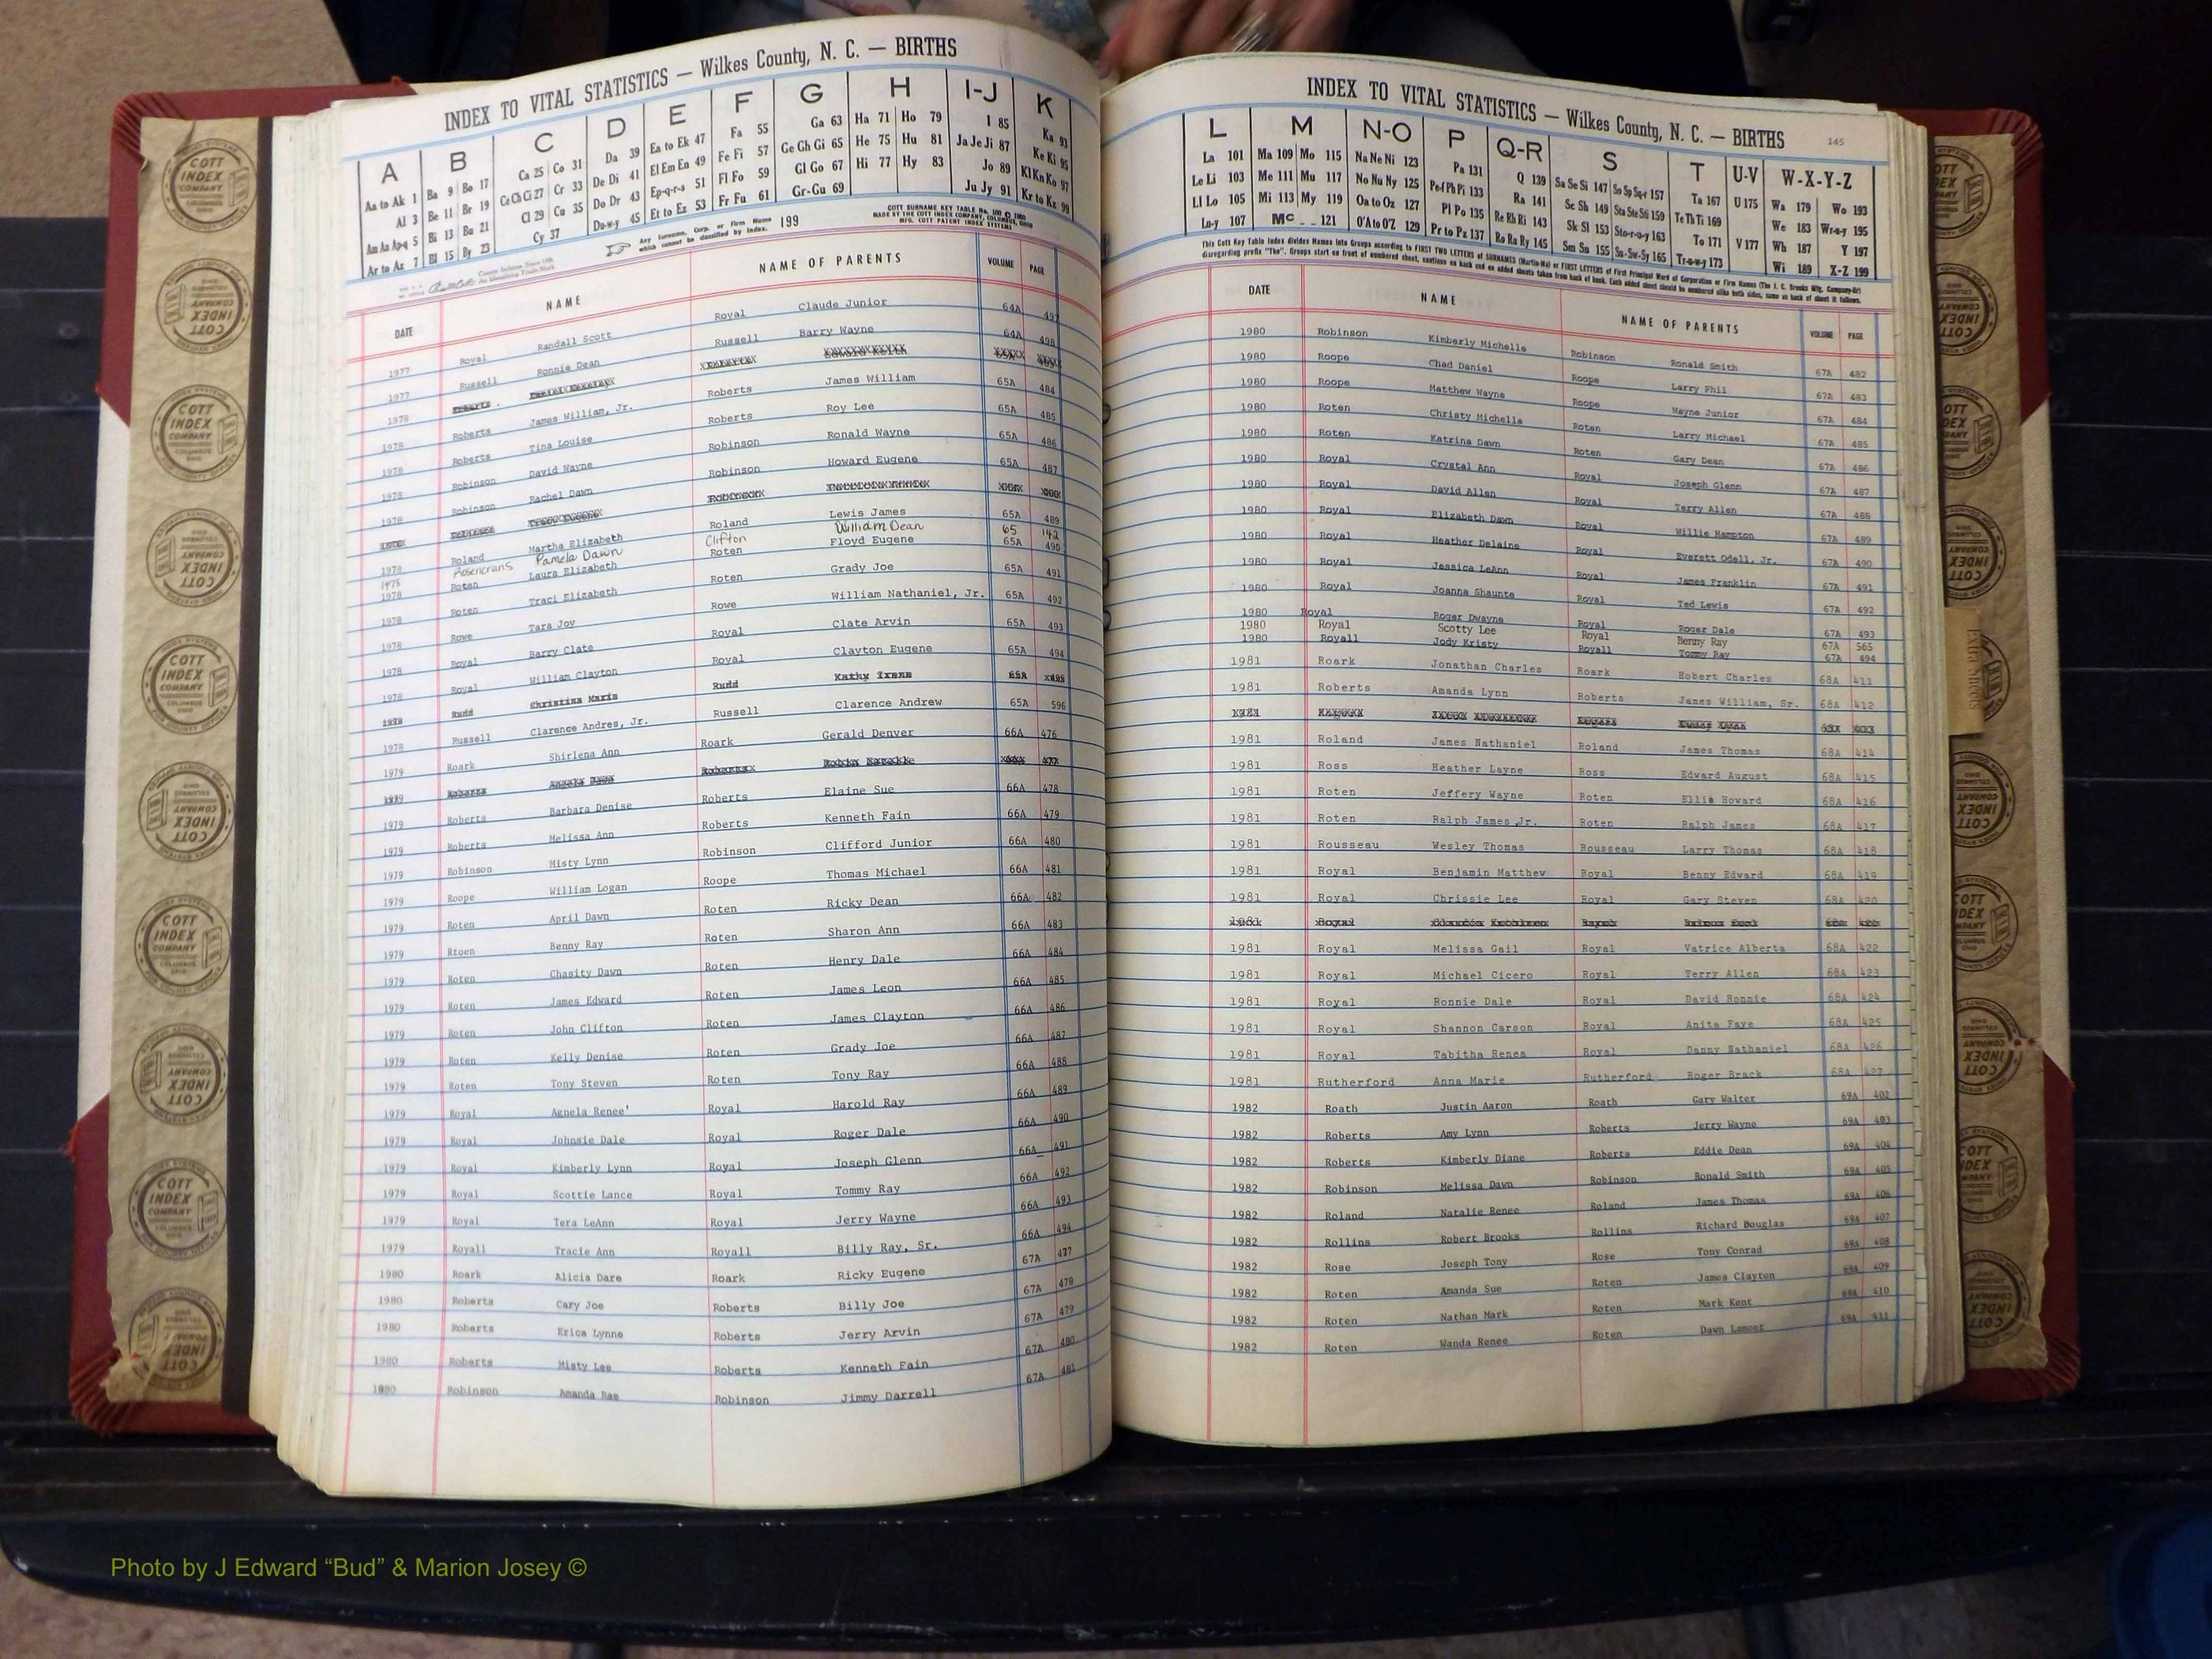 INDEX TO VITAL STATISTICS — Wilkes County, N. C. — BIRTHS
A B C D E F G H I-J K
Aa to Ak 1 Ba 9 Bo 17 Ca 25 Co 31 Da 39 Ea to Ek 47 Fa 55 Ga 63 Ha 71 Ho 79 I 85 Ka 93
Al 3 Be 11 Br 19 Ce Ch Ci 27 Cr 33 De Di 41 El Em En 49 Fe Fi 57 Ge Gh Gi 65 He 75 Hu 81 Ja Je Ji 87 Ke Ki 95
Am An Ap-q 5 Bi 13 Bu 21 Cl 29 Cu 35 Do Dr 43 Ep-q-r-s 51 Fl Fo 59 Gl Go 67 Hi 77 Hy 83 Jo 89 Kl Kn Ko 97
Ar to Az 7 Bl 15 By 23 Cy 37 Du-w-y 45 Et to Ez 53 Fr Fu 61 Gr-Gu 69 Ju Jy 91 Kr to Kz 99
Any Surname, Corp. or Firm Name which cannot be classified by index. 199
DATE NAME NAME OF PARENTS VOLUME PAGE
1977 Royal Randall Scott Royal Claude Junior 64A 497
1977 Russell Ronnie Dean Russell Barry Wayne 64A 498
1978
1978 Roberts James William, Jr. Roberts James William 65A 484
1978 Roberts Tina Louise Roberts Roy Lee 65A 485
1978 Robinson David Wayne Robinson Ronald Wayne 65A 486
1978 Robinson Rachel Dawn Robinson Howard Eugene 65A 487
1978 Roland Martha Elizabeth Roland Lewis James 65A 489
1975 Rosencrans Pamela Dawn Clifton William Dean 65 142
1978 Roten Laura Elizabeth Roten Floyd Eugene 65A 490
1978 Roten Traci Elizabeth Roten Grady Joe 65A 491
1978 Rowe Tara Joy Rowe William Nathaniel, Jr. 65A 492
1978 Royal Barry Clate Royal Clate Arvin 65A 493
1978 Royal William Clayton Royal Clayton Eugene 65A 494
1978 Rudd Christina Marie Rudd Kathy Irene 65A
1978 Russell Clarence Andres, Jr. Russell Clarence Andrew 65A 596
1979 Roark Shirlena Ann Roark Gerald Denver 66A 476
1979 Roberts
1979 Roberts Barbara Denise Roberts Elaine Sue 66A 478
1979 Roberts Melissa Ann Roberts Kenneth Fain 66A 479
1979 Robinson Misty Lynn Robinson Clifford Junior 66A 480
1979 Roope William Logan Roope Thomas Michael 66A 481
1979 Roten April Dawn Roten Ricky Dean 66A 482
1979 Rtoen Benny Ray Roten Sharon Ann 66A 483
1979 Roten Chasity Dawn Roten Henry Dale 66A 484
1979 Roten James Edward Roten James Leon 66A 485
1979 Roten John Clifton Roten James Clayton 66A 486
1979 Roten Kelly Denise Roten Grady Joe 66A 487
1979 Roten Tony Steven Roten Tony Ray 66A 488
1979 Royal Agnela Renee' Royal Harold Ray 66A 489
1979 Royal Johnsie Dale Royal Roger Dale 66A 490
1979 Royal Kimberly Lynn Royal Joseph Glenn 66A 491
1979 Royal Scottie Lance Royal Tommy Ray 66A 492
1979 Royal Tera LeAnn Royal Jerry Wayne 66A 493
1979 Royall Tracie Ann Royall Billy Ray, Sr. 66A 494
1980 Roark Alicia Dare Roark Ricky Eugene 67A 477
1980 Roberts Cary Joe Roberts Billy Joe 67A 478
1980 Roberts Erica Lynne Roberts Jerry Arvin 67A 479
1980 Roberts Misty Lee Roberts Kenneth Fain 67A 480
1980 Robinson Amanda Rae Robinson Jimmy Darrell 67A 481
INDEX TO VITAL STATISTICS — Wilkes County, N. C. — BIRTHS 145
L M N-O P Q-R S T U-V W-X-Y-Z
La 101 Ma 109 Mo 115 Na Ne Ni 123 Pa 131 Q 139 Sa Se Si 147 So Sp Sq-r 157 Ta 167 U 175 Wa 179 Wo 193
Le Li 103 Me 111 Mu 117 No Nu Ny 125 Pe-f Ph Pi 133 Ra 141 Sc Sh 149 Sta Ste Sti 159 Te Th Ti 169 We 183 Wr-u-y 195
Ll Lo 105 Mi 113 My 119 Oa to Oz 127 Pl Po 135 Re Rh Ri 143 Sk Sl 153 Sto-r-u-y 163 To 171 V 177 Wh 187 Y 197
Lu-y 107 Mc 121 O'A to O'Z 129 Pr to Pz 137 Ro Ru Ry 145 Sm Sn 155 Su-Sw-Sy 165 Tr-u-w-y 173 Wi 189 X-Z 199
This Cott Key Table Index divides Names into Groups according to FIRST TWO LETTERS of SURNAMES (Martin-Ma) or FIRST LETTERS of First Principal Word of Corporation or Firm Names (The J. C. Brooks Mfg. Company-Br)
disregarding prefix "The". Groups start on front of numbered sheet, continue on back and on added sheets taken from back of book. Each added sheet should be numbered alike both sides, same as back of sheet it follows.
DATE NAME NAME OF PARENTS VOLUME PAGE
1980 Robinson Kimberly Michelle Robinson Ronald Smith 67A 482
1980 Roope Chad Daniel Roope Larry Phil 67A 483
1980 Roope Matthew Wayne Roope Wayne Junior 67A 484
1980 Roten Christy Michelle Roten Larry Michael 67A 485
1980 Roten Katrina Dawn Roten Gary Dean 67A 486
1980 Royal Crystal Ann Royal Joseph Glenn 67A 487
1980 Royal David Allen Royal Terry Allen 67A 488
1980 Royal Elizabeth Dawn Royal Willie Hampton 67A 489
1980 Royal Heather Delaine Royal Everett Odell, Jr. 67A 490
1980 Royal Jessica LeAnn Royal James Franklin 67A 491
1980 Royal Joanna Shaunte Royal Ted Lewis 67A 492
1980 Royal Roger Dwayne Royal Roger Dale 67A 493
1980 Royal Scotty Lee Royal Benny Ray 67A 565
1980 Royall Jody Kristy Royall Tommy Ray 67A 494
1981 Roark Jonathan Charles Roark Robert Charles 68A 411
1981 Roberts Amanda Lynn Roberts James William, Sr. 68A 412
1981 Roland James Nathaniel Roland James Thomas 68A 414
1981 Ross Heather Layne Ross Edward August 68A 415
1981 Roten Jeffery Wayne Roten Ellis Howard 68A 416
1981 Roten Ralph James Jr. Roten Ralph James 68A 417
1981 Rousseau Wesley Thomas Rousseau Larry Thomas 68A 418
1981 Royal Benjamin Matthew Royal Benny Edward 68A 419
1981 Royal Chrissie Lee Royal Gary Steven 68A 420
1981 Royal
1981 Royal Melissa Gail Royal Vatrice Alberta 68A 422
1981 Royal Michael Cicero Royal Terry Allen 68A 423
1981 Royal Ronnie Dale Royal David Ronnie 68A 424
1981 Royal Shannon Carson Royal Anita Faye 68A 425
1981 Royal Tabitha Renea Royal Danny Nathaniel 68A 426
1981 Rutherford Anna Marie Rutherford Roger Brack 68A 427
1982 Roath Justin Aaron Roath Gary Walter 69A 402
1982 Roberts Amy Lynn Roberts Jerry Wayne 69A 403
1982 Roberts Kimberly Diane Roberts Eddie Dean 69A 404
1982 Robinson Melissa Dawn Robinson Ronald Smith 69A 405
1982 Roland Natalie Renee Roland James Thomas 69A 406
1982 Rollins Robert Brooks Rollins Richard Douglas 69A 407
1982 Rose Joseph Tony Rose Tony Conrad 69A 408
1982 Roten Amanda Sue Roten James Clayton 69A 409
1982 Roten Nathan Mark Roten Mark Kent 69A 410
1982 Roten Wanda Renee Roten Dawn Lamont 69A 411
COTT INDEX COMPANY
Photo by J Edward “Bud” & Marion Josey ©